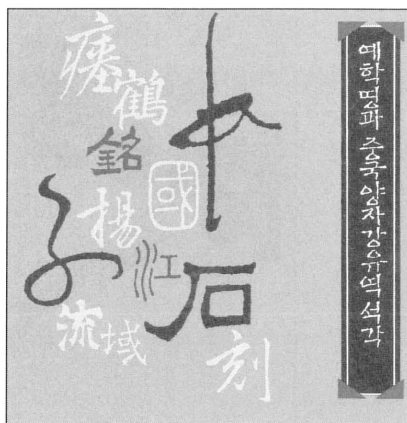 瘞鶴銘
中國
揚子江
流域
石刻
예학명과 중국양자강유역 석각